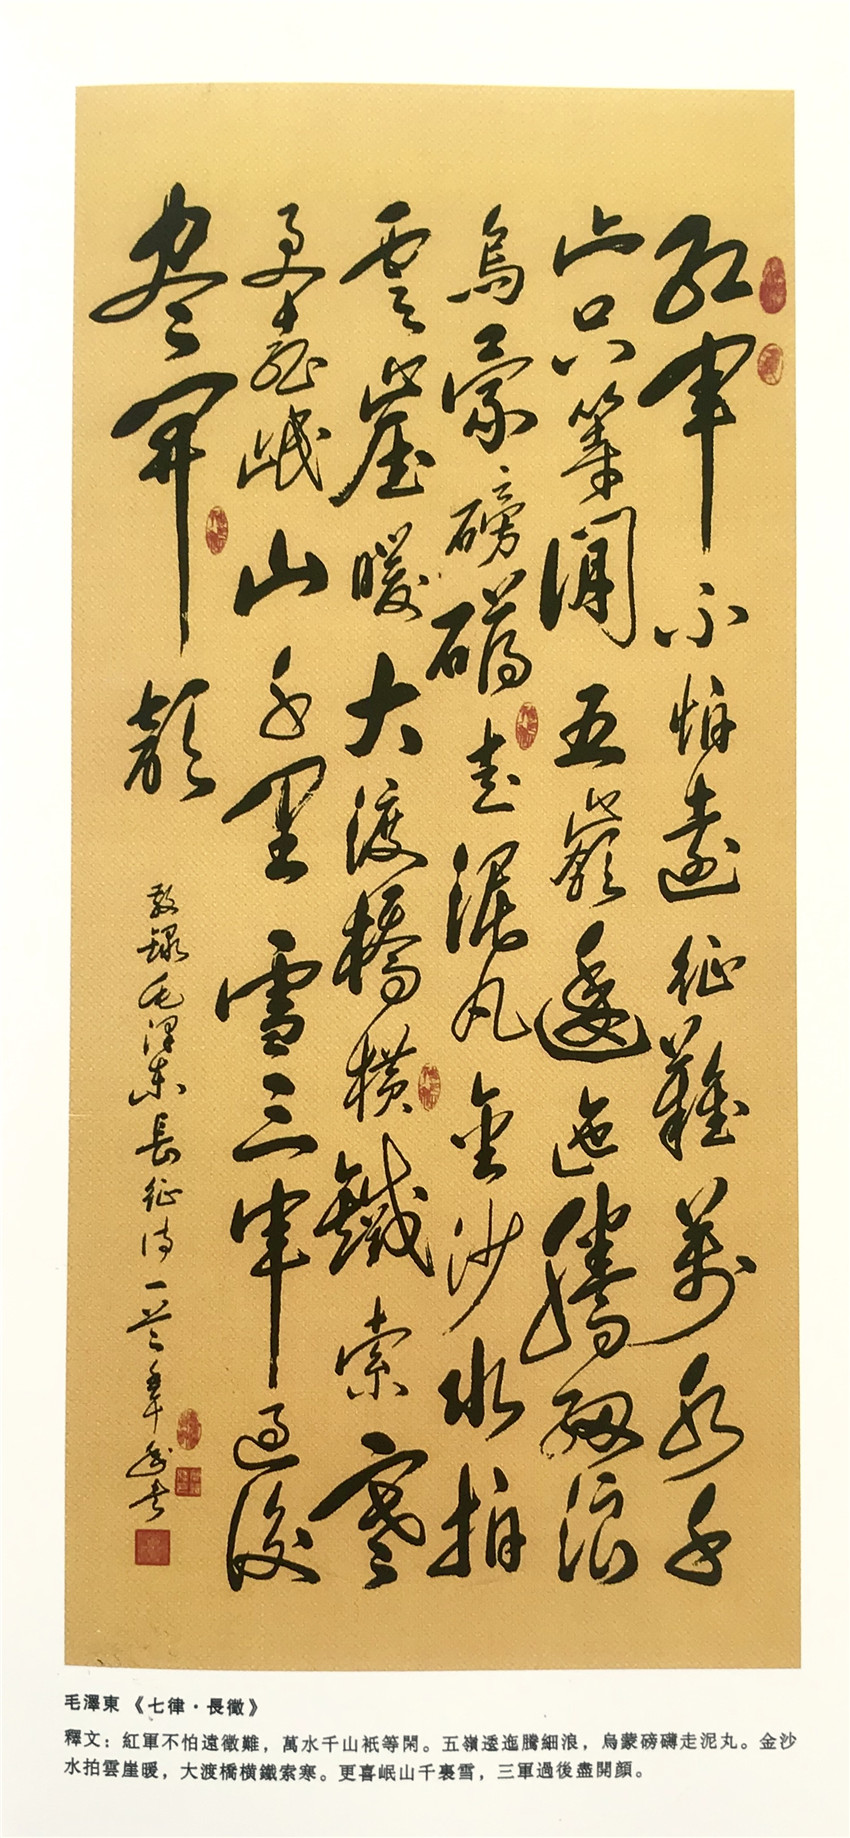 红军不怕遠征難萬水千
山只等闲五嶺逶迤騰細浪
烏蒙磅礴走泥丸金沙水拍
雲崖暖大渡橋横鐵索寒
更喜岷山千里雪三军過後
尽開颜
敬録毛澤東長征诗
毛澤東《七律·長徵》
釋文：紅軍不怕遠徵難，萬水千山衹等閑。五嶺逶迤騰細浪，烏蒙磅礴走泥丸。金沙
水拍雲崖暖，大渡橋橫鐵索寒。更喜岷山千裏雪，三軍過後盡開顏。